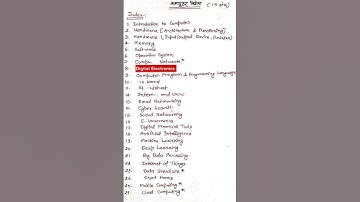 कम्प्यूटर विज्ञान (15 प्रश्न)
Index:-
1. Introduction to Computer
2. Hardware [Architecture & Functioning]
3. Hardware [Input/output Device, Printer]
4. Memory
5. Software
6. Operating System
7. Network*
8. Digital Electronics
9. Computer Program & Programming Language
10. MS word
11. MS
12. Internet and WWW
13. Email Networking
14. Cyber Security
15. Social Networking
16. E-Governance
17. Digital Financial Tools
18. Artificial Intelligence
19. Machine Learning
20. Deep Learning
21. Big Data Processing
22. Internet of Things
23. Data Structure*
24. Short Forms
25. Mobile Computing*
Cloud Computing*